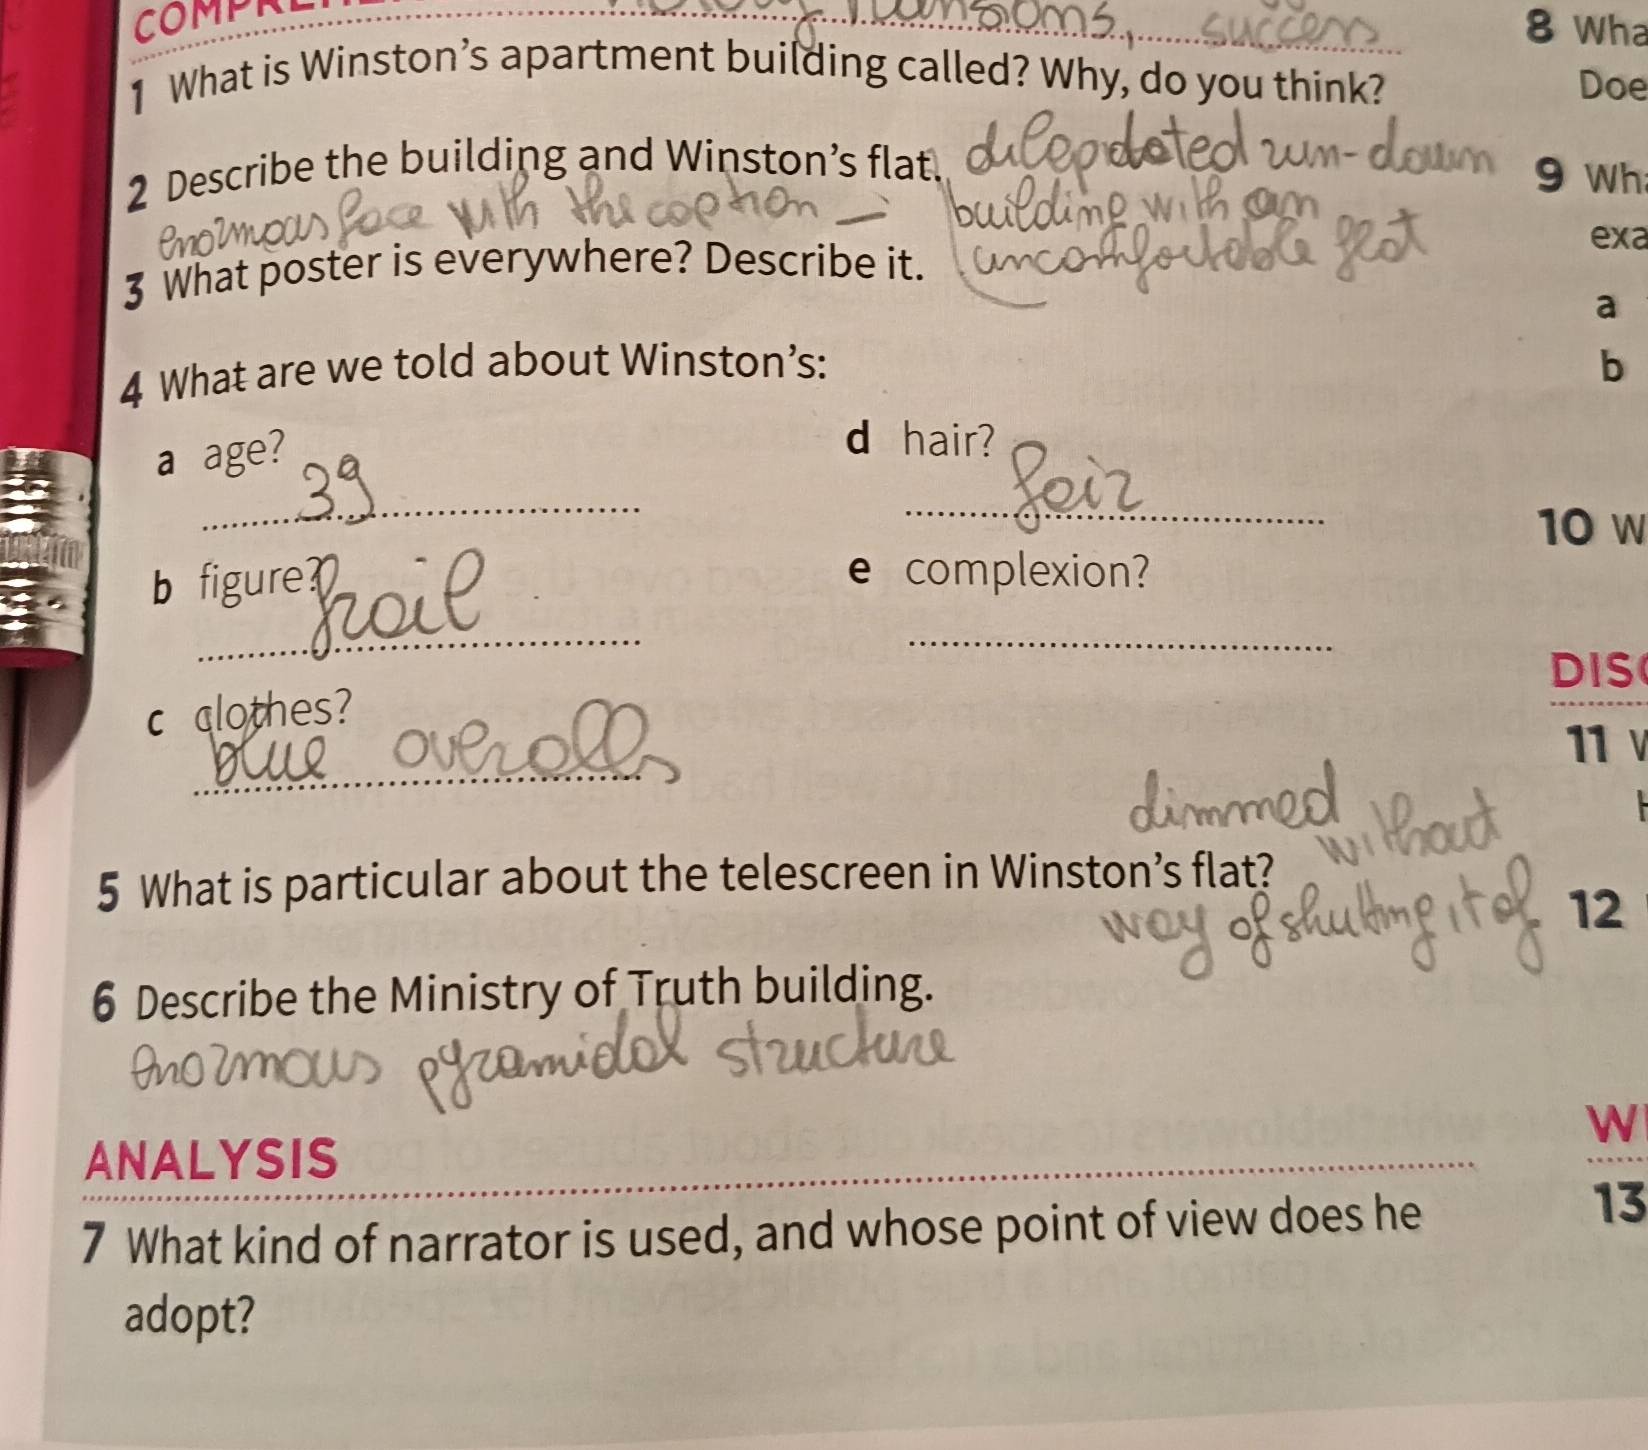 COMPRE
Mansions, success
1 What is Winston's apartment building called? Why, do you think?
2 Describe the building and Winston's flat. dilepidated run-down
building with an
uncomfortable flat
enormous face with the caption
3 What poster is everywhere? Describe it.
4 What are we told about Winston's:
a age?
39
b figure?
frail
c clothes?
blue overalls
d hair?
fair
e complexion?
5 What is particular about the telescreen in Winston's flat?
dimmed without
way of shutting it of
6 Describe the Ministry of Truth building.
enormous pyramidal structure
ANALYSIS
7 What kind of narrator is used, and whose point of view does he
adopt?
8 Wha
Doe
9 Wh
exa
a
b
10 W
DIS
11
12
W
13